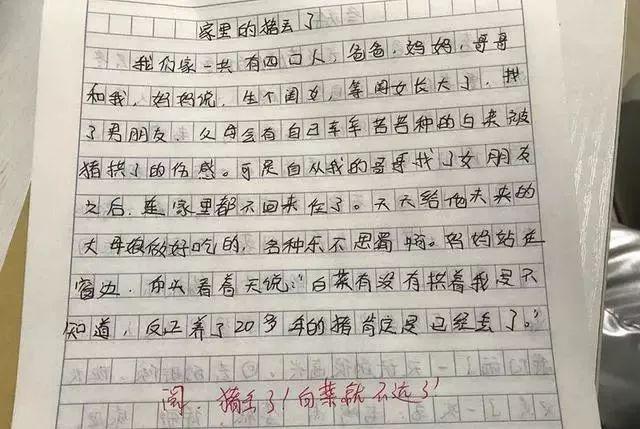 家里的猪丢了
我们家一共有四口人，爸爸，妈妈，哥哥
和我，妈妈说，生个闺女，等闺女长大了，找
了男朋友，父母会有自己辛辛苦苦种的白菜被
猪拱了的伤感。可是自从我的哥哥找了女朋友
之后，连家里都不回来住了。天天给他未来的
丈母娘做好吃的，各种乐不思蜀啊。妈妈站在
窗边，仰头看着天说：“白菜有没有拱着我是不
知道，反正养了20多年的猪肯定是已经丢了。”
阅：猪丢了！白菜就不远了！